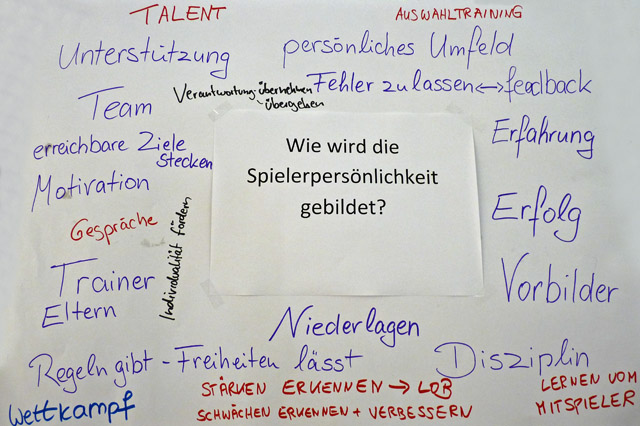 TALENT
AUSWAHLTRAINING
Unterstützung
persönliches Umfeld
Verantwortung übernehmen
übergeben
Fehler zulassen ↔ feedback
Team
erreichbare Ziele
stecken
Erfahrung
Wie wird die
Spielerpersönlichkeit
gebildet?
Motivation
Gespräche
Individualität fördern
Erfolg
Trainer
Eltern
Vorbilder
Niederlagen
Regeln gibt - Freiheiten lässt
Disziplin
Wettkampf
STÄRKEN ERKENNEN → LOB
SCHWÄCHEN ERKENNEN + VERBESSERN
LERNEN VOM
MITSPIELER